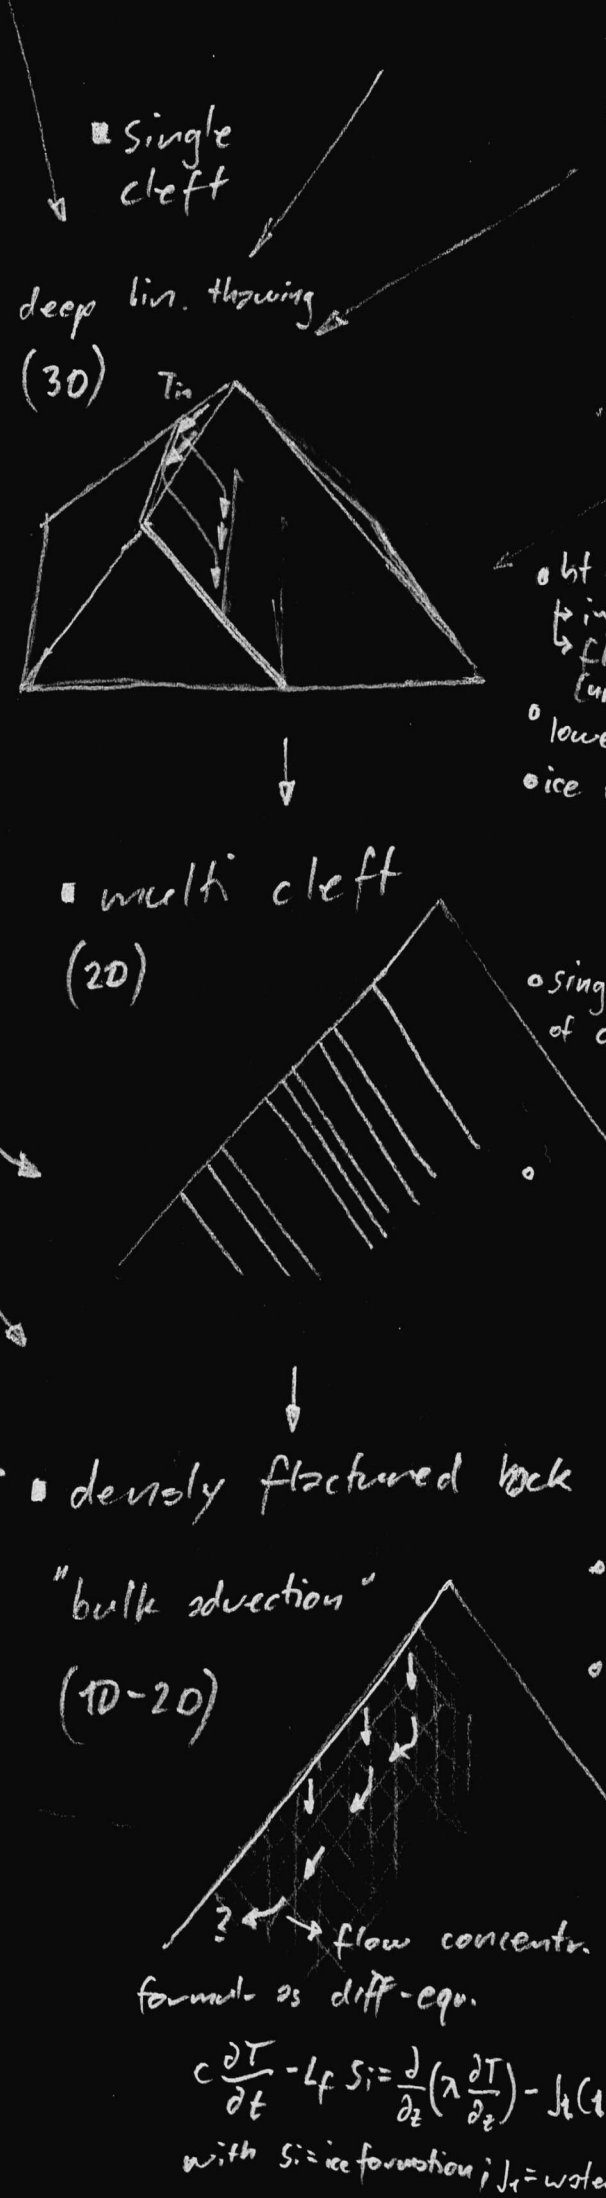 ▪ single
cleft
deep lin. thawing
(3D)
T_in
• ht
↳ in
↳ fl
(un
∘ lowe
• ice
▪ multi cleft
(2D)
∘ sing
of c
▪ densly fractured rock
"bulk advection"
(1D-2D)
? flow concentr.
formul. as diff-equ.
c ∂T/∂t - L_f S_i = ∂/∂z (λ ∂T/∂z) - J_t (t
with S_i = ice formation ; J_t = wate